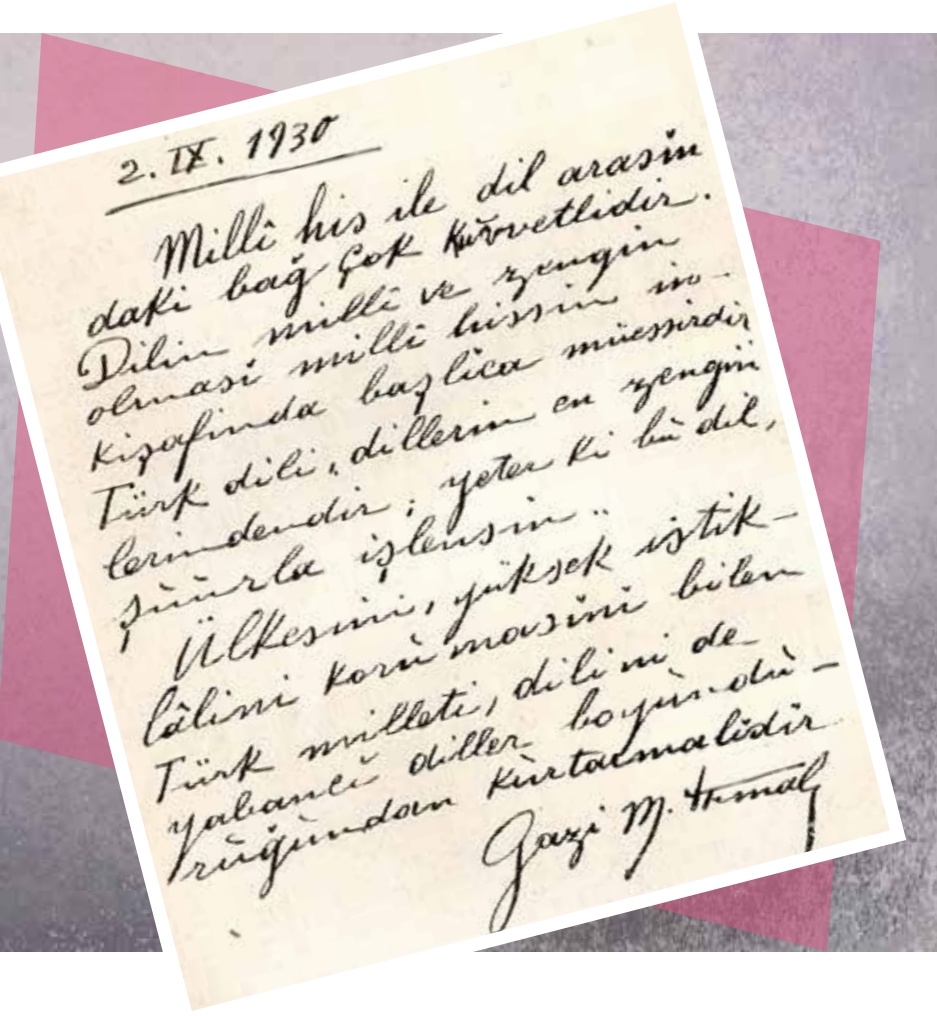 2. IX. 1930
Millî his ile dil arasın
daki bağ çok kuvvetlidir.
Dilin millî ve zengin
olması millî hissin in-
kişafında başlıca müessirdir
Türk dili, dillerin en zengin
lerindendir; yeter ki bu dil,
şuurla işlensin..
Ülkesini, yüksek istik-
lâlini korumasını bilen
Türk milleti, dilini de
yabancı diller boyundu-
ruğundan kurtarmalıdır
Gazi M. Kemal